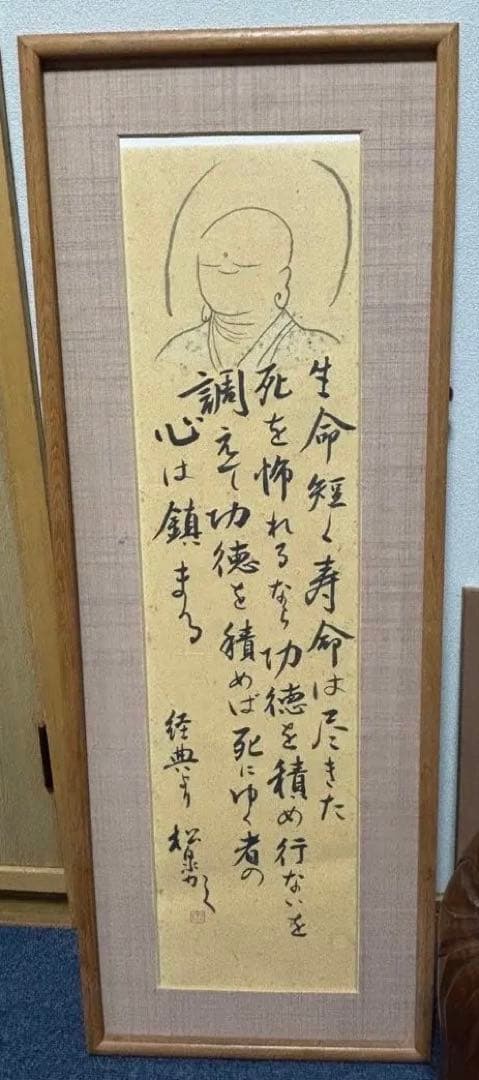 生命短く寿命は尽きた
死を怖れるなら功徳を積め行ないを
調えて功徳を積めば死にゆく者の
心は鎮まる
経典より